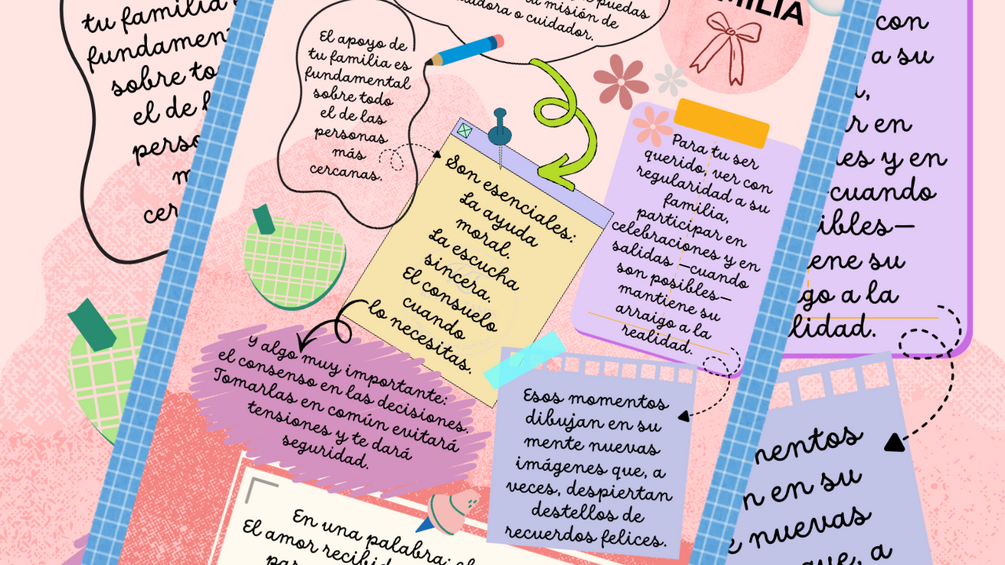 puedas
misión de
cuidadora o cuidador.
El apoyo de
tu familia es
fundamental
sobre todo
el de las
personas
más
cercanas.
Son esenciales:
La ayuda
moral.
La escucha
sincera.
El consuelo
cuando
lo necesitas.
Para tu ser
querido, ver con
regularidad a su
familia,
participar en
celebraciones y en
salidas —cuando
son posibles—
mantiene su
arraigo a la
realidad.
y algo muy importante:
el consenso en las decisiones.
Tomarlas en común evitará
tensiones y te dará
seguridad.
Esos momentos
dibujan en su
mente nuevas
imágenes que, a
veces, despiertan
destellos de
recuerdos felices.
En una palabra:
El amor recibido
tu familia
sobre
el de
cer
con
a su
en
y en
cuando
a la
en su
nuevas
que, a